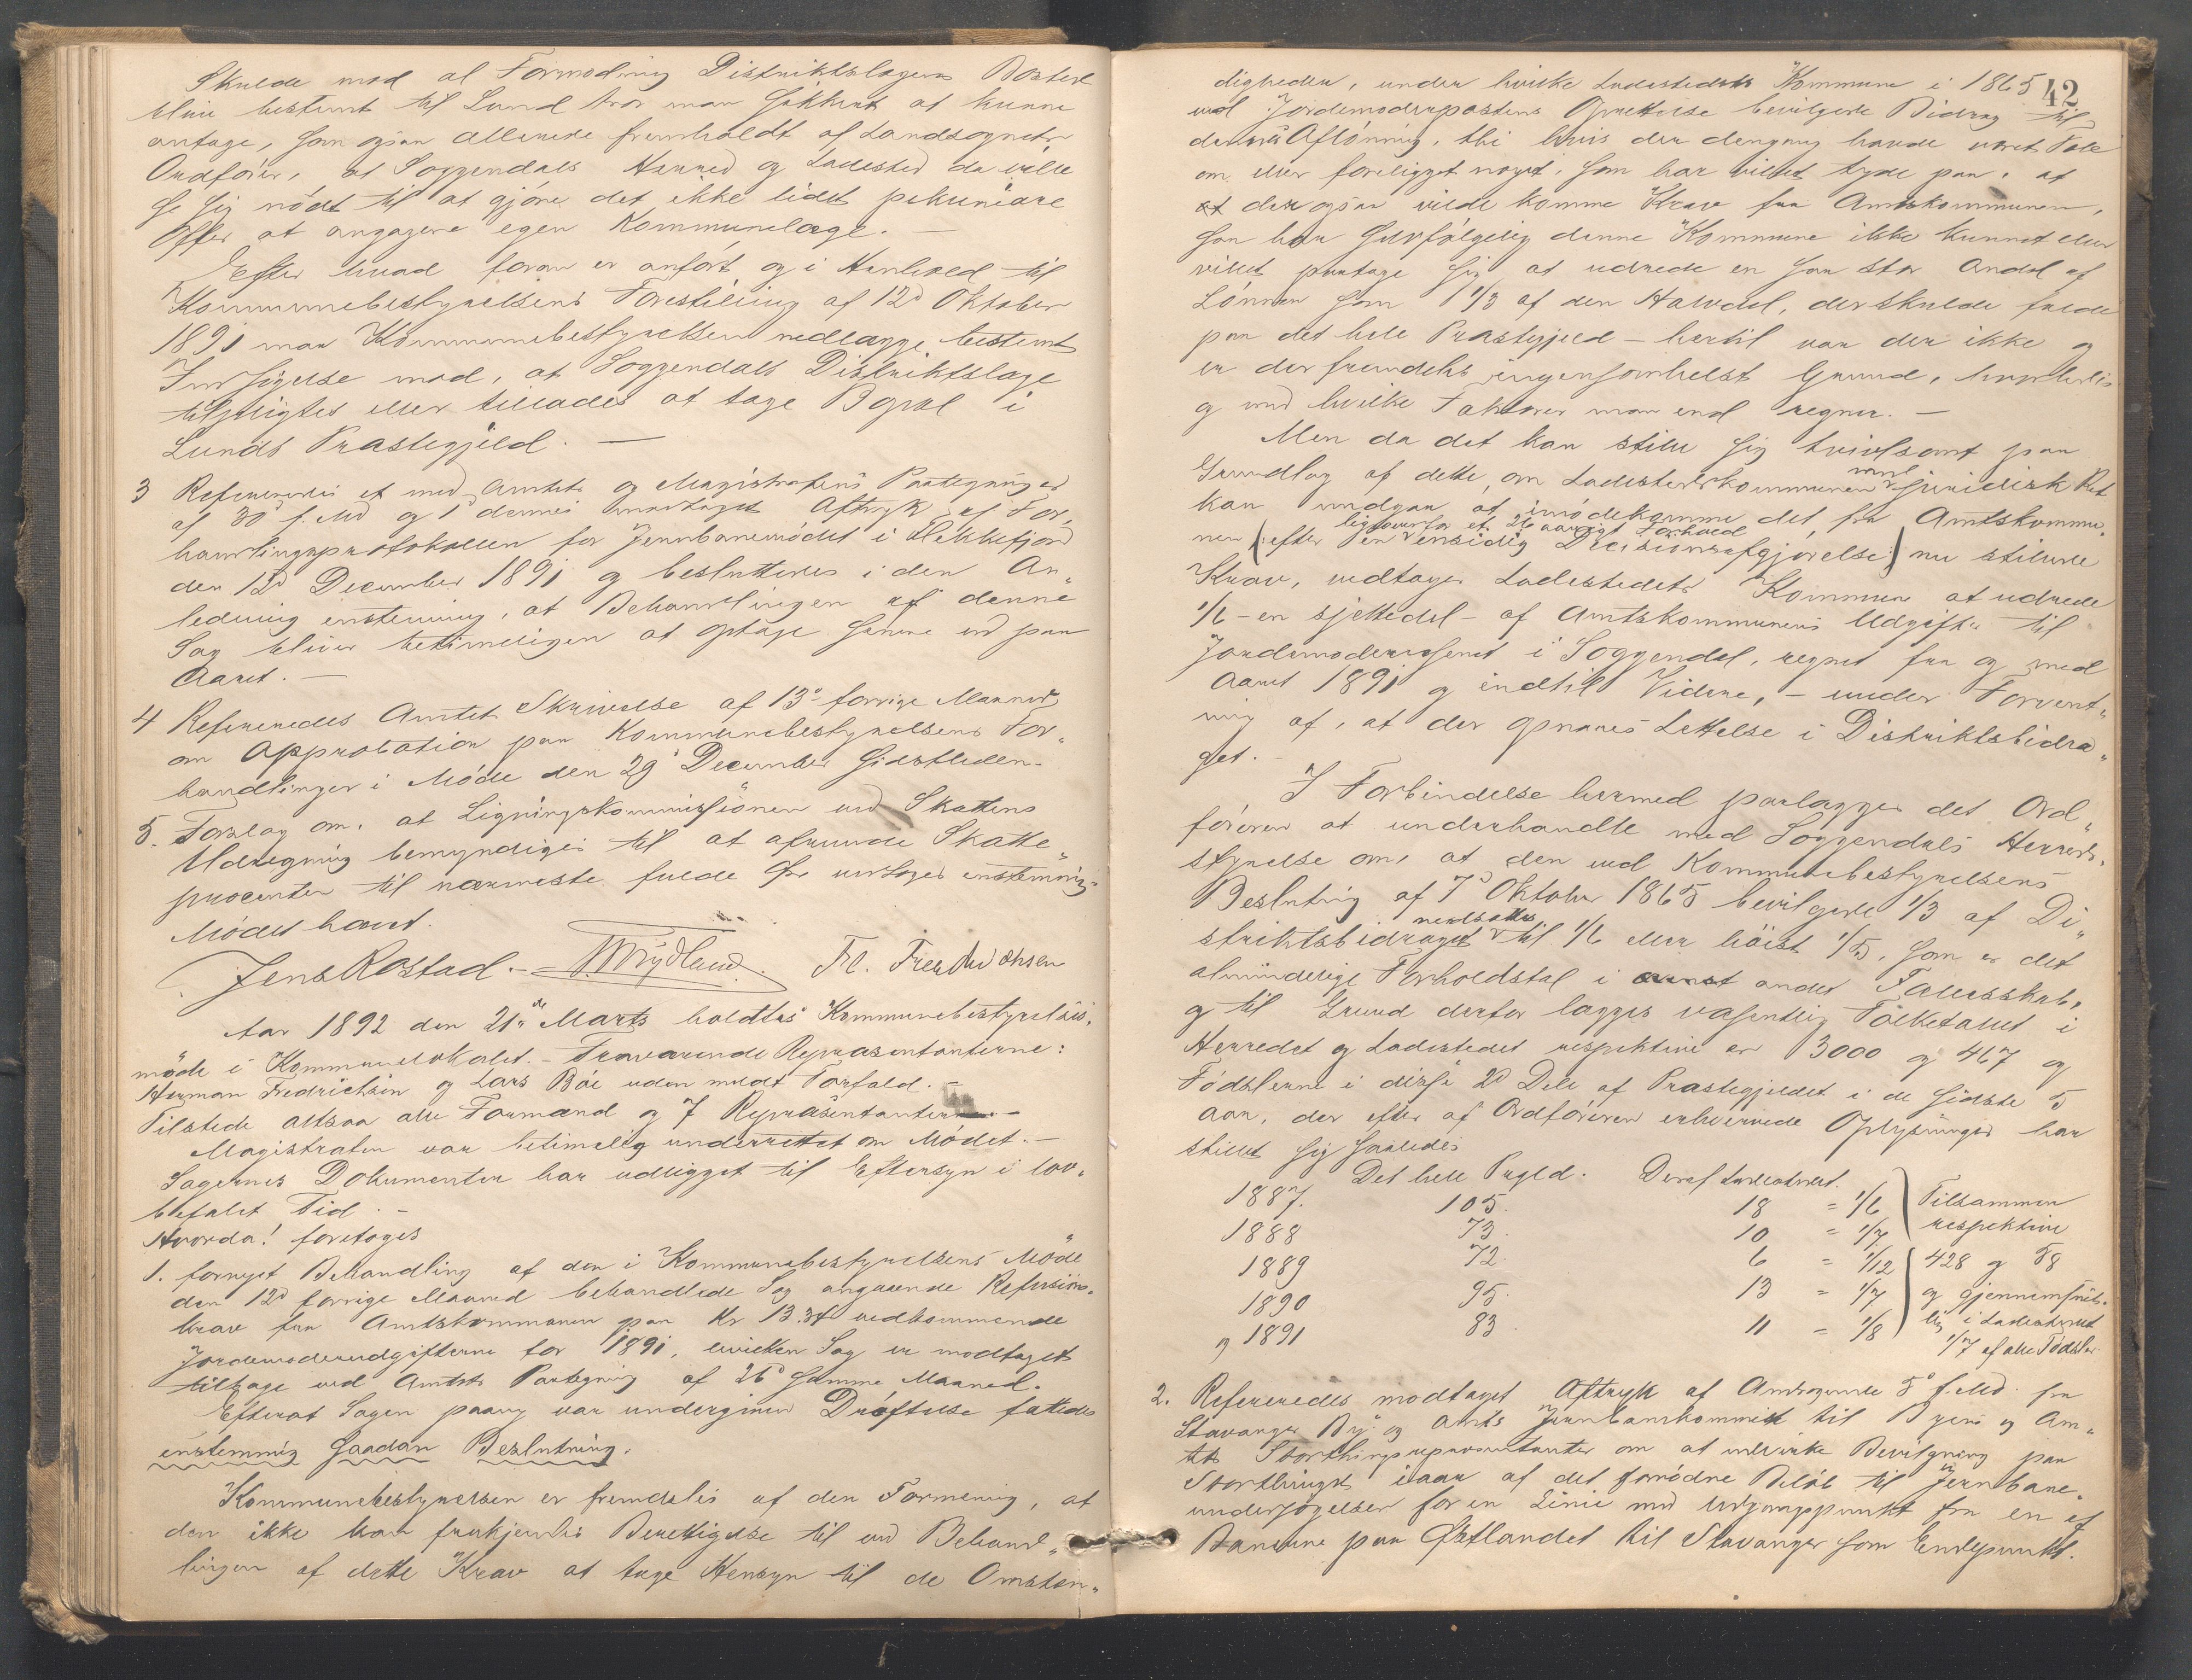 Skulde mod al Formodning Distriktslægens Bosted
blive bestemt til Lund tror man sikkert at kunne
antage, som ogsaa allerede fremholdt af Landsognets
Ordfører, at Soggendals Herred og Ladested da ville
se sig nødt til at gjøre det ikke lidet pekuniære
Offer at engagere egen Kommunelæge. —
Efter hvad foran er anført og i Henhold til
Kommunebestyrelsens Forestilling af 12d Oktober
1891 maa Kommunebestyrelsen nedlægge bestemt
Indsigelse mod, at Soggendals Distriktslæge
tilpligtes eller tillades at tage Bopæl i
Lunds Præstegjeld. —
3 Refereredes et med Amtets og Magistratens Paategninger
af 30d f. Md og 1d dennes modtaget Aftryk af For„
handlingsprotokollen for Jernbanemødet i Flekkefjord
den 12d December 1891 og besluttedes i den An„
ledning enstemmig, at Behandlingen af denne
Sag bliver betimeligen at optage senere ud paa
Aaret. —
4 Refereredes Amtets Skrivelse af 13de forrige Maaned
om Approbation paa Kommunebestyrelsens For„
handlinger i Møde den 29de December sidstleden.
5. Forslag om, at Ligningskommissionen ved Skattens
Udregning bemyndiges til at afrunde Skatte„
procenten til nærmeste fulde Øre vedtoges enstemmig.
Mødet hævet.
Jens Rostad. — Trydland. Fr. Fredrichsen
Aar 1892 den 21de Marts holdtes Kommunebestyrelses„
møde i Kommunelokalet. – Fraværende Repræsentanterne:
Herman Fredrichsen og Lars Bøe uden meldt Forfald. —
Tilstede altsaa alle Formænd og 7 Repræsentanter. —
Magistraten var betimelig underrettet om Mødet. —
Sagernes Dokumenter har udligget til Eftersyn i lov„
befalet Tid. —
Hvorda! foretoges
1. fornyet Behandling af den i Kommunebestyrelsens Møde
den 12d forrige Maaned behandlede Sag angaaende Refusions„
krav fra Amtskommunen paa Kr 13.34 vedkommende
Jordemoderudgifterne for 1891, hvilken Sag er modtaget
tilbage med Amtets Paategning af 26d samme Maaned.
Efterat Sagen paany var undergiven Drøftelse fattedes
enstemmig saadan Beslutning.
Kommunebestyrelsen er fremdeles af den Formening, at
den ikke kan frakjendes Berettigelse til ved Behand„
lingen af dette Krav at tage Hensyn til de Omstæn„
42
digheder, under hvilke Ladestedets Kommune i 1865
ved Jordemoderpostens Oprettelse bevilgede Bidrag til
dennes Aflønning, thi hvis der dengang havde været Tale
om eller foreligget noget, som har villet tyde paa, at
der ogsaa vilde komme Krav fra Amtskommunen,
saa har selvfølgelig denne Kommune ikke kunnet eller
villet paatage sig at udrede en saa stor Andel af
Lønnen som 1/3 af den Halvdel, der skulde falde
paa det hele Præstegjeld – hertil var der ikke og
er der fremdeles ingensomhelst Grund, hvorledes
og med hvilke Faktorer man end regner. —
Men da det kan stille sig tvivlsomt paa
Grundlag af dette, om Ladestedskommunen med juridisk Ret
kan undgaa at imødekomme det, fra Amtskommu„
ligeoverfor et 26 aarigt Forhold
nen (: efter en ensidig Decisionsafgjørelse :) nu stillede
Krav, vedtager Ladestedets Kommune at udrede
1/6 – en sjettedel – af Amtskommunens Udgifter til
Jordemodervæsenet i Soggendal, regnet fra og med
Aaret 1891 og indtil Videre, – under Forvent„
ning af, at der opnaaes Lettelse i Distriktsbidra„
get. —
I Forbindelse hermed paalægges det Ord„
føreren at underhandle med Soggendals Herreds„
styrelse om, at den ved Kommunebestyrelsens
Beslutning af 7d Oktober 1865 bevilgede 1/3 af Di„
striktsbidraget nedsættes til 1/6 eller høist 1/5, som er det
almindelige Forholdstal i andet Fællesskab,
og til Grund derfor lægges væsentlig Folketallet i
Herredet og Ladestedet respektive er 3000 og 467 og
Fødslerne i disse 2d Dele af Præstegjeldet i de sidste 5
Aar, der efter af Ordføreren erhvervede Oplysninger har
stillet sig saaledes
Det hele Prgjeld. Deraf Ladestedet.
1887. 105. 18 = 1/6 Tilsammen
1888 73. 10 = 1/7 respektive
1889 72. 6 = 1/12 428 og 58
1890 95. 13 = 1/7 og gjennemsnit„
og 1891 83 11 = 1/8 lig i Ladestedet
1/7 af alle Fødsler.
2. Refereredes modtaget Aftryk af Andragende 5d f. Md. fra
Stavanger By og Amts Jernbanekommité til Byens og Am„
tets Storthingsrepræsentanter om at udvirke Bevilgning paa
Storthinget iaar af det fornødne Beløb til Jernbane„
undersøgelser for en Linie med Udgangspunkt fra en af
Banerne paa Østlandet til Stavanger som Endepunkt.